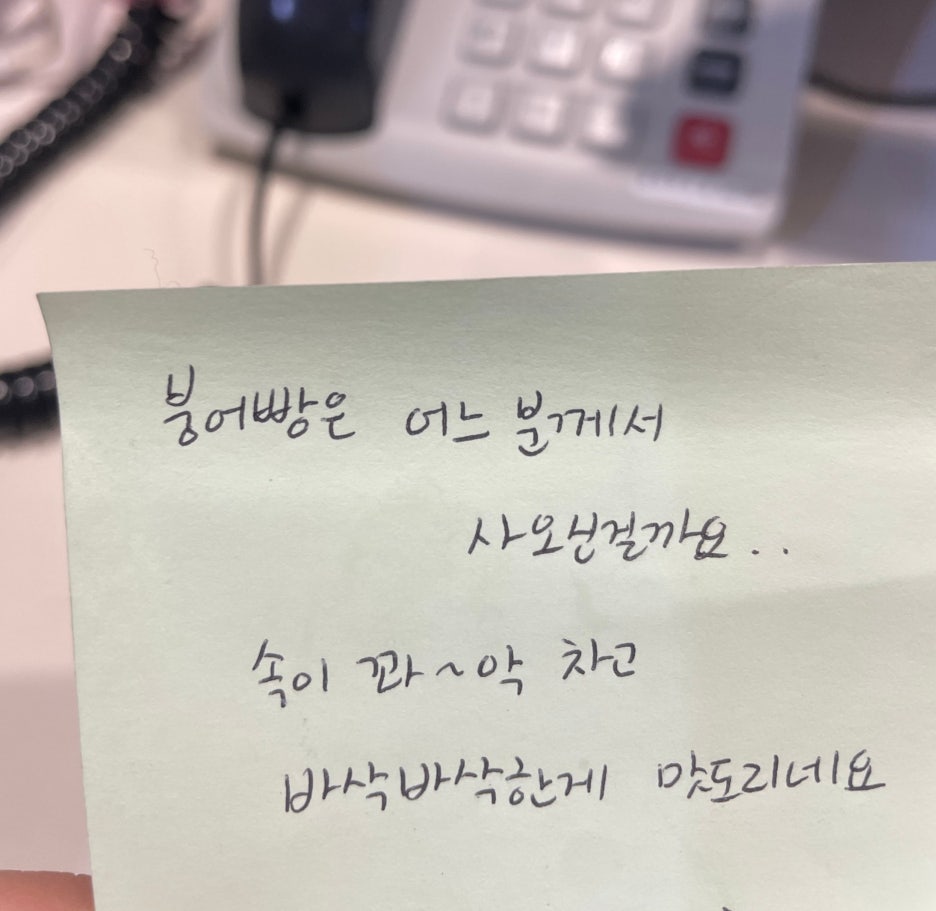 붕어빵은 어느 분께서
사오신걸까요..
속이 꽈~악 차고
바삭바삭한게 맛도리네요